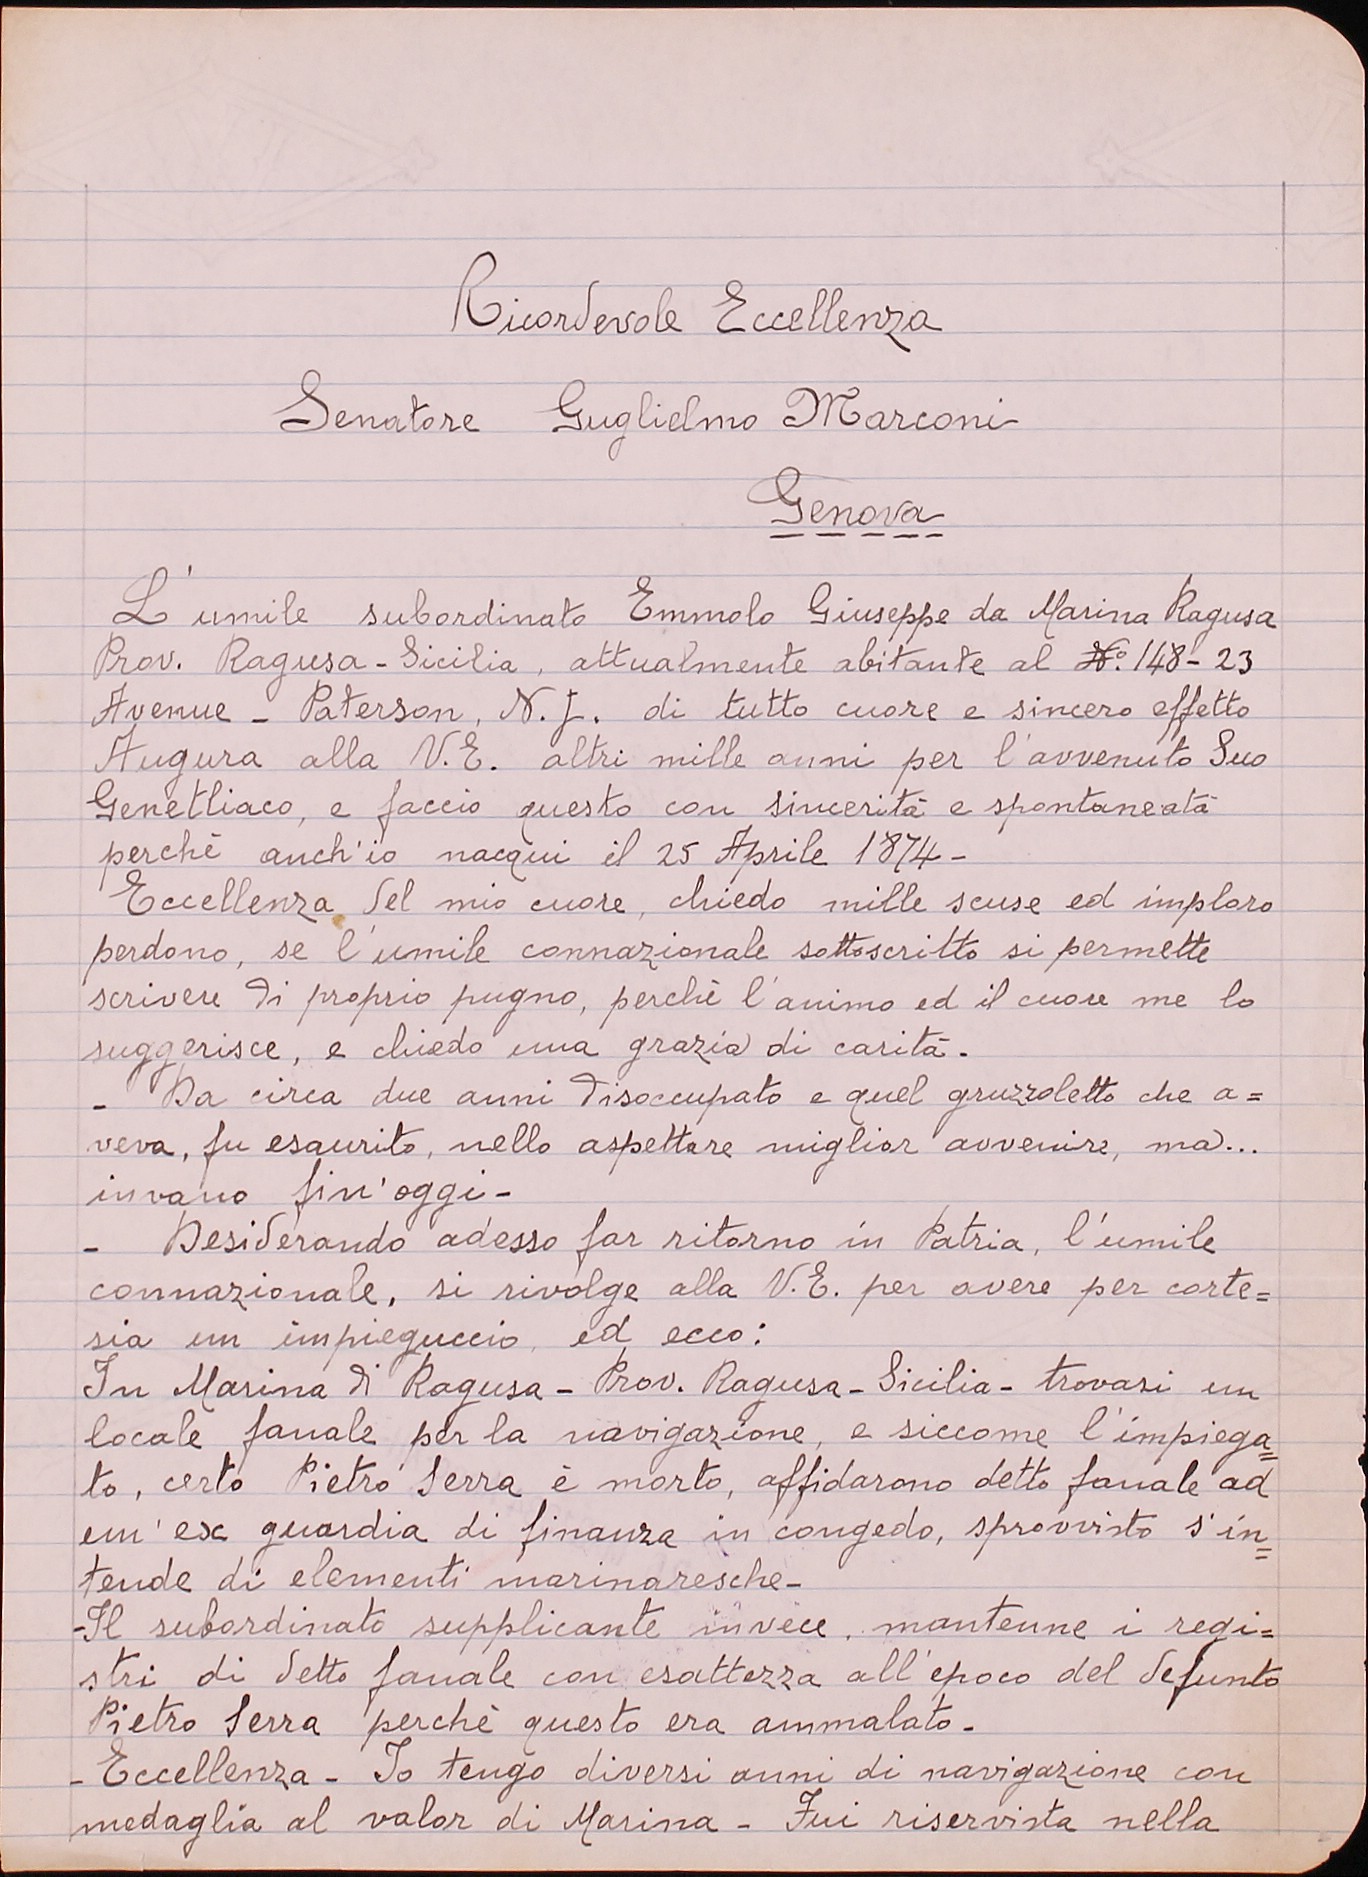 Ricordevole Eccellenza
Senatore Guglielmo Marconi
Genova
L'umile subordinato Emmolo Giuseppe da Marina Ragusa
Prov. Ragusa - Sicilia, attualmente abitante al No. 148 - 23
Avenue - Paterson, N.J. di tutto cuore e sincero effetto
Augura alla V.E. altri mille anni per l'avvenuto Suo
Genetliaco, e faccio questo con sincerità e spontaneatà
perchè anch'io nacqui il 25 Aprile 1874 -
Eccellenza del mio cuore, chiedo mille scuse ed imploro
perdono, se l'umile connazionale sottoscritto si permette
scrivere di proprio pugno, perchè l'animo ed il cuore me lo
suggerisce, e chiedo una grazia di carità.
- Da circa due anni disoccupato e quel gruzzoletto che a=
veva, fu esaurito, nello aspettare miglior avvenire, ma...
invano fin'oggi -
- Desiderando adesso far ritorno in Patria, l'umile
connazionale, si rivolge alla V.E. per avere per corte=
sia un impieguccio, ed ecco:
In Marina di Ragusa - Prov. Ragusa - Sicilia - trovasi un
locale fanale per la navigazione, e siccome l'impiega=
to, certo Pietro Serra è morto, affidarono detto fanale ad
un'ex guardia di finanza in congedo, sprovvisto s'in=
tende di elementi marinaresche -
- Il subordinato supplicante invece, mantenne i regi=
stri di detto fanale con esattezza all'epoco del defunto
Pietro Serra perchè questo era ammalato -
- Eccellenza - Io tengo diversi anni di navigazione con
medaglia al valor di Marina - Fui riservista nella